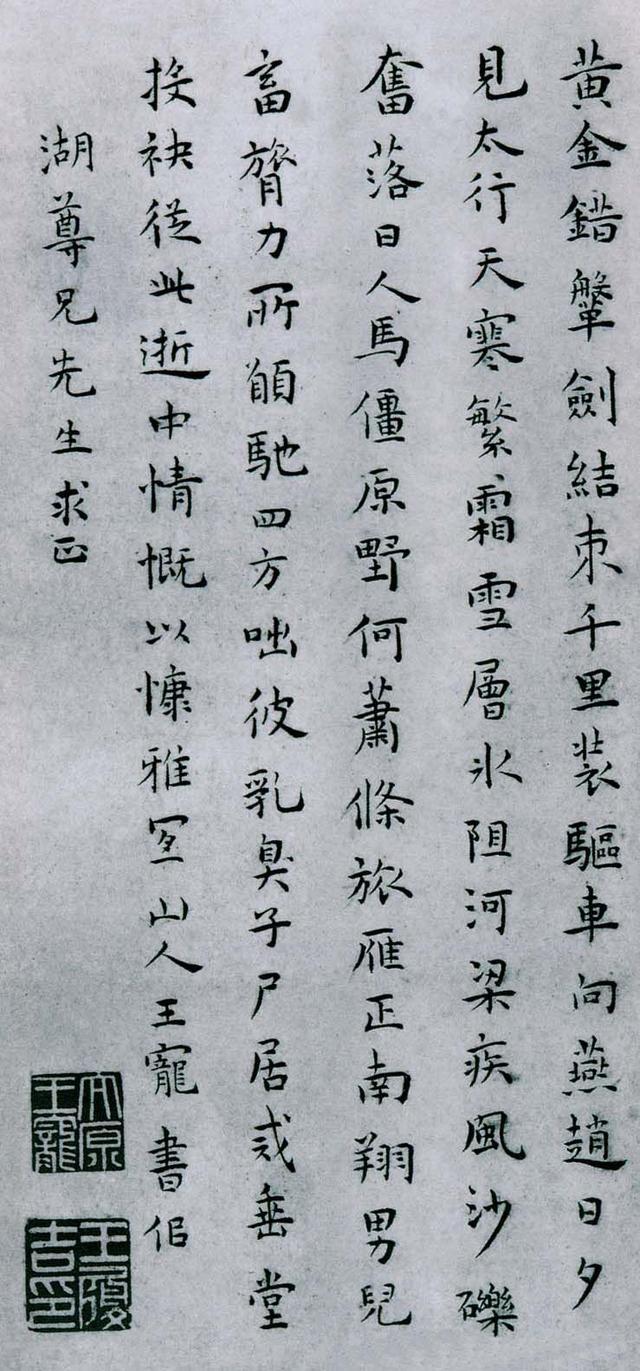 黃金錯鞶劍結束千里裝驅車向燕趙日夕
見太行天寒繁霜雪層冰阻河梁疾風沙礫
奮落日人馬僵原野何蕭條旅雁正南翔男兒
畜膂力所願馳四方咄彼乳臭子尸居戒垂堂
投袂從此逝中情慨以慷雅宜山人王寵書似
湖尊兄先生求正
太原王寵
王履吉印